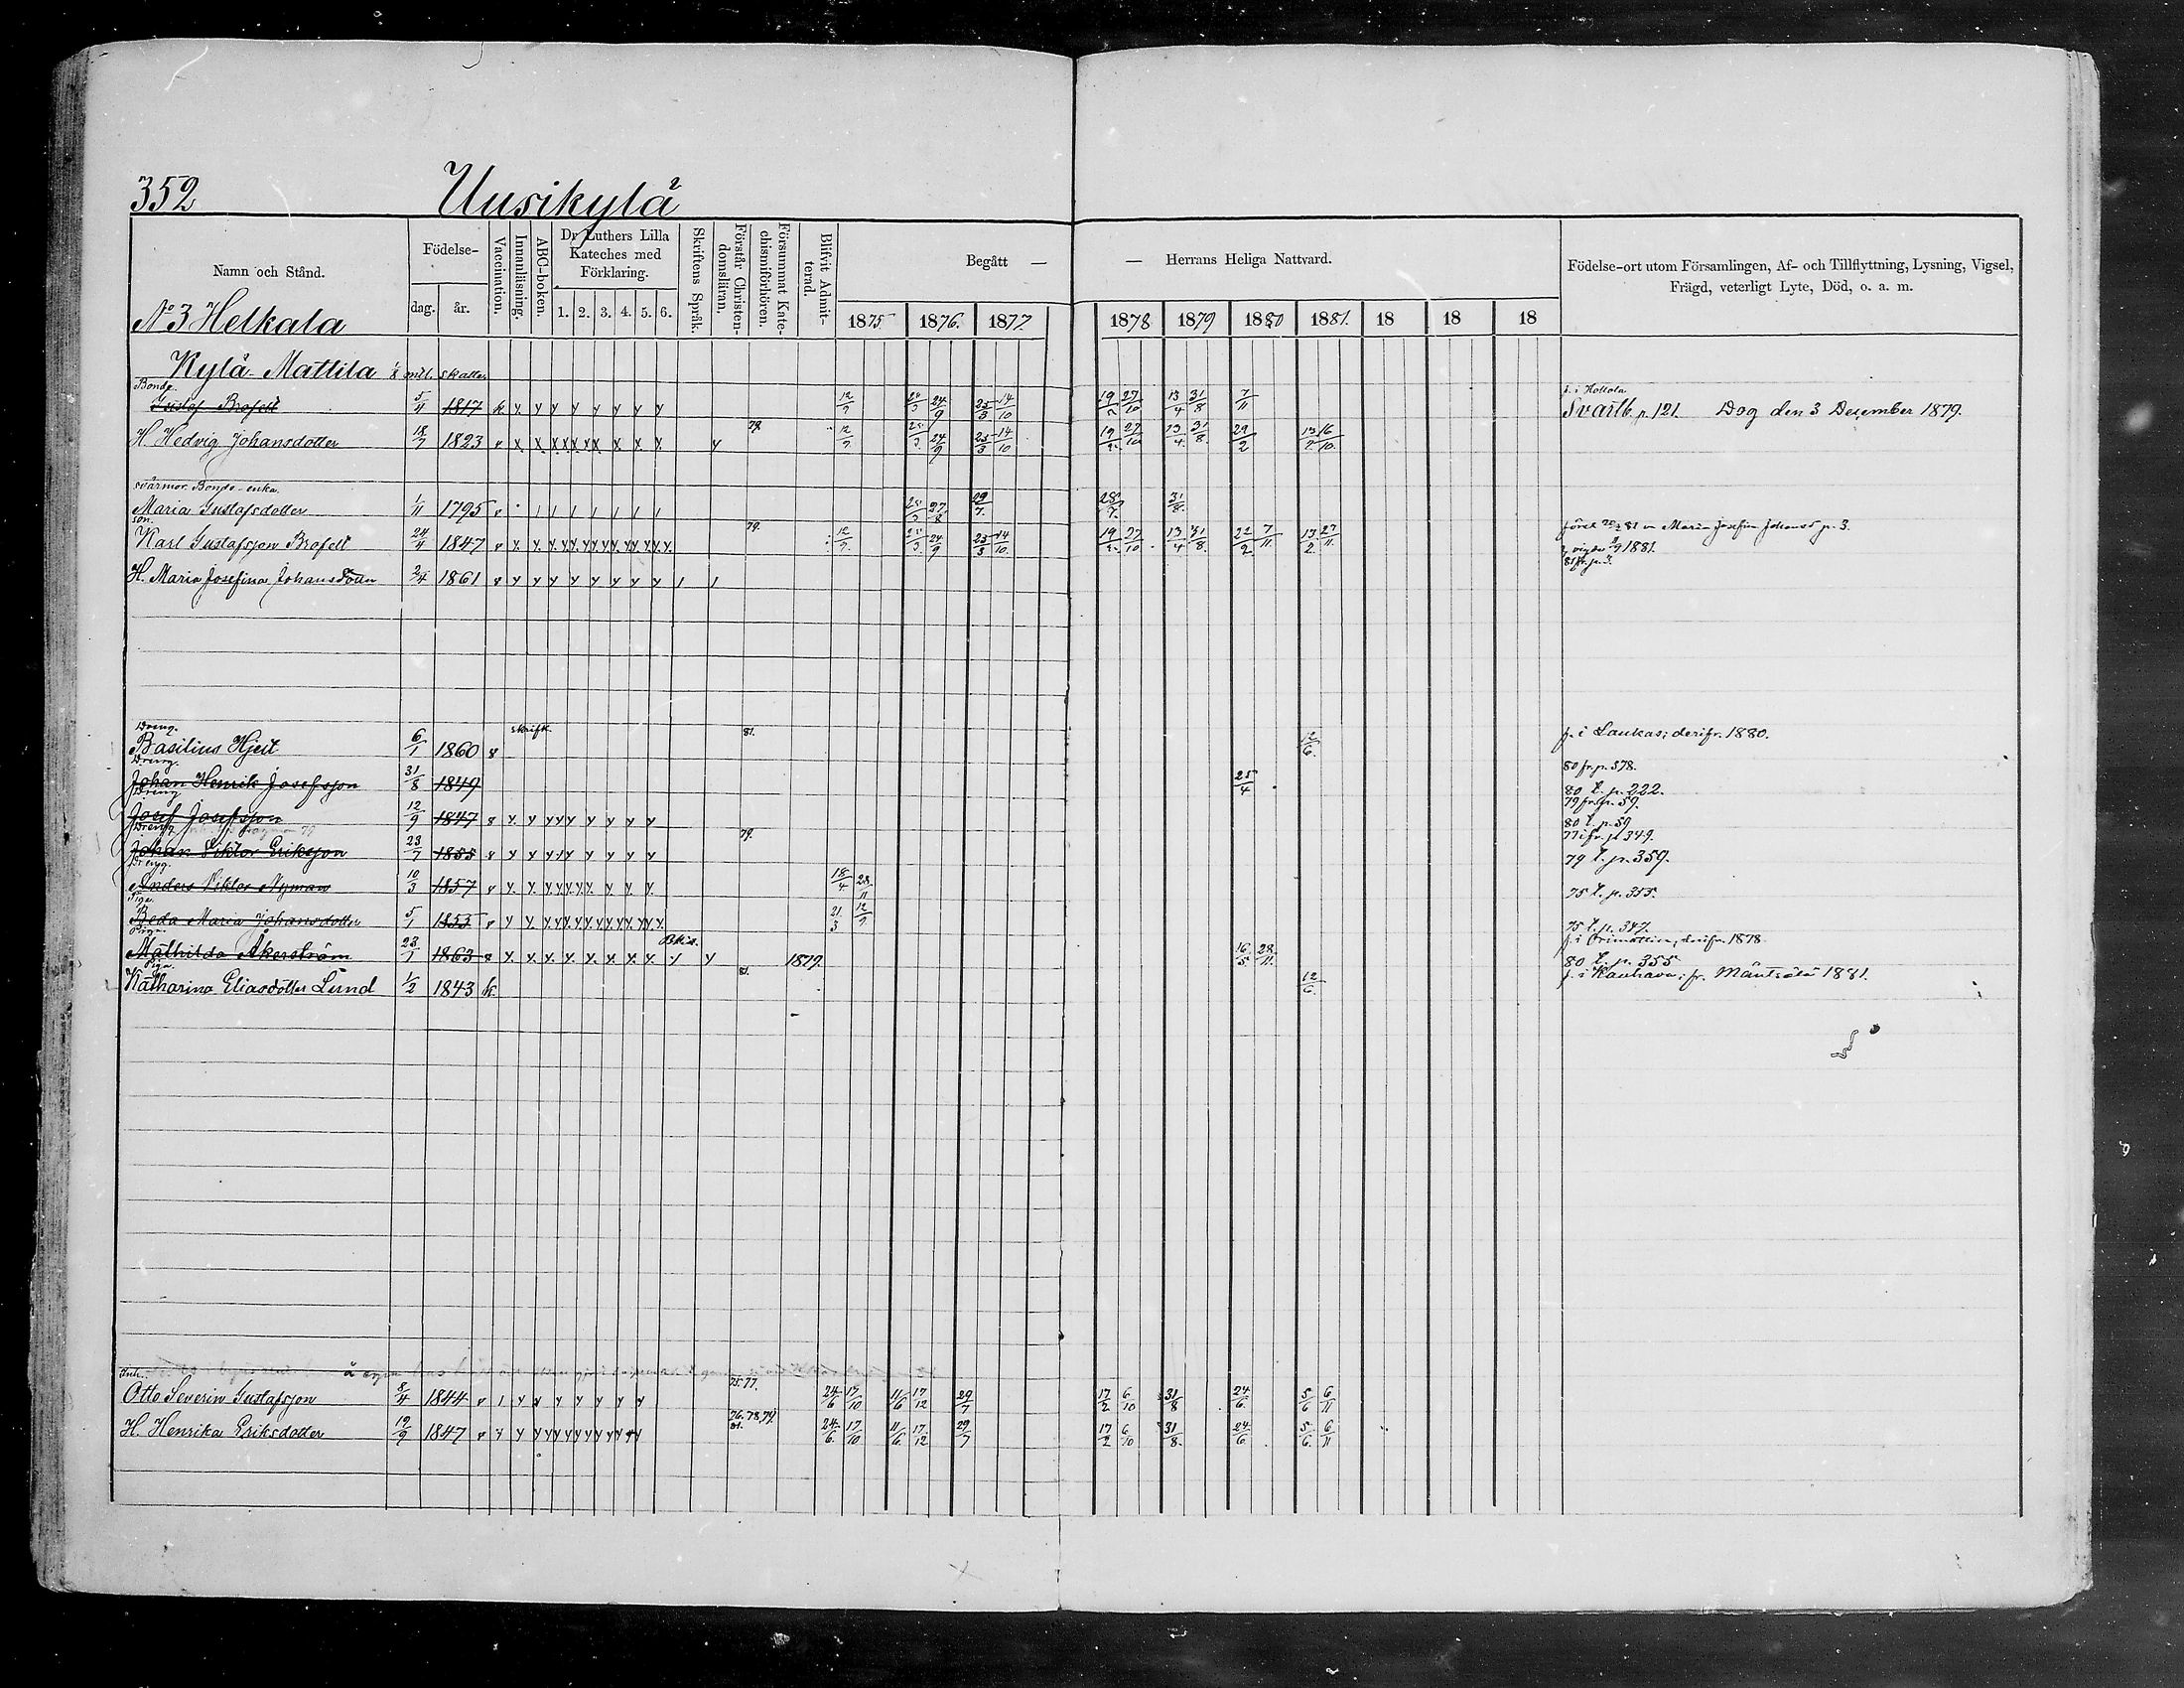 352 Uusikylä
Namn och Stånd.
Födelse-
dag. år.
Vaccination.
Innanläsning.
ABC-boken.
Dr Luthers Lilla Kateches med Förklaring.
1. 2. 3. 4. 5. 6.
Skriftens Språk.
Förstår Christendomsläran.
Försummat Katechismiförhören.
Blifvit Admitterad.
Begått — — Herrans Heliga Nattvard.
1875 1876. 1877. 1878 1879 1880 1881. 18 18 18
Födelse-ort utom Församlingen, Af- och Tillflyttning, Lysning, Vigsel,
Frägd, veterligt Lyte, Död, o. a. m.
No 3 Helkala
Kylä-Mattila 1/8 mtl. skatte
Bonde.
Gustaf Brofelt 5/4 1817 k y y y y y y y y 12/9 24/9 25/3 14/10 19/2 27/10 13/4 31/8 7/11 Svartb. p. 121. Dog den 3 December 1879.
f. i Hollola
H. Hedvig Johansdotter 18/7 1823 79. 12/9 24/9 25/3 14/10 19/2 27/10 13/4 31/8. 29/2 16/10.
svärmor Bonde-enka.
Maria Gustafsdotter 1/11 1795 27/8 29/7. 28/7. 31/8.
son.
Karl Gustafsson Brofelt 24/4 1847 79. 12/9. 24/9 25/3 14/10. 19/2. 27/10. 13/4 31/8. 22/2 7/11. 13/2. 27/11. Maria Josefina Johansd p. 3.
H. Maria Josefina Johansdotter 2/4 1861 vigde 2/7 1881.
81 fr. p. 3.
Dreng. skrifk. 81.
Basilius Hjeit 6/1 1860 12/6. f. i Laukas; derifr. 1880.
Dreng.
Johan Henrik Josefsson 31/8 1849 25/4 80 fr. p. 378.
80 t. p. 222.
Dreng
Josef Josefsson 12/9 1847 79 fr. p. 59.
80 t. p. 59
Dreng
Johan Viktor Eriksson 23/7 1855 79. 77 ifr. p. 349.
79 t. p. 359.
Dreng.
Anders Viktor Nyman 10/3 1857 18/4. 28/11 75 t. p. 355.
Piga.
Beda Maria Johansdotter 5/1 1855 21/3 12/9 75 t. p. 347.
Piga.
Mathilda Åkerström 23/1 1863 1879. 16/5 28/11. f. i Orimattila, derifr. 1878.
80 t. p. 355
Piga. 81.
Katharina Eliasdotter Lund 1/2 1843 k. 12/6. f. i Kauhava; fr. Mäntsälä 1881.
Inh. 75. 77.
Otto Severin Gustafsson 8/4 1844 24/6 17/10 11/6 17/12 29/7 17/2 6/10 31/8 24/6. 5/6 6/11
76. 78, 79. 81.
H. Henrika Eriksdotter 19/9 1847 24/6. 17/10 11/6. 17/12 29/7 17/2 6/10 31/8. 24/6. 5/6. 6/11